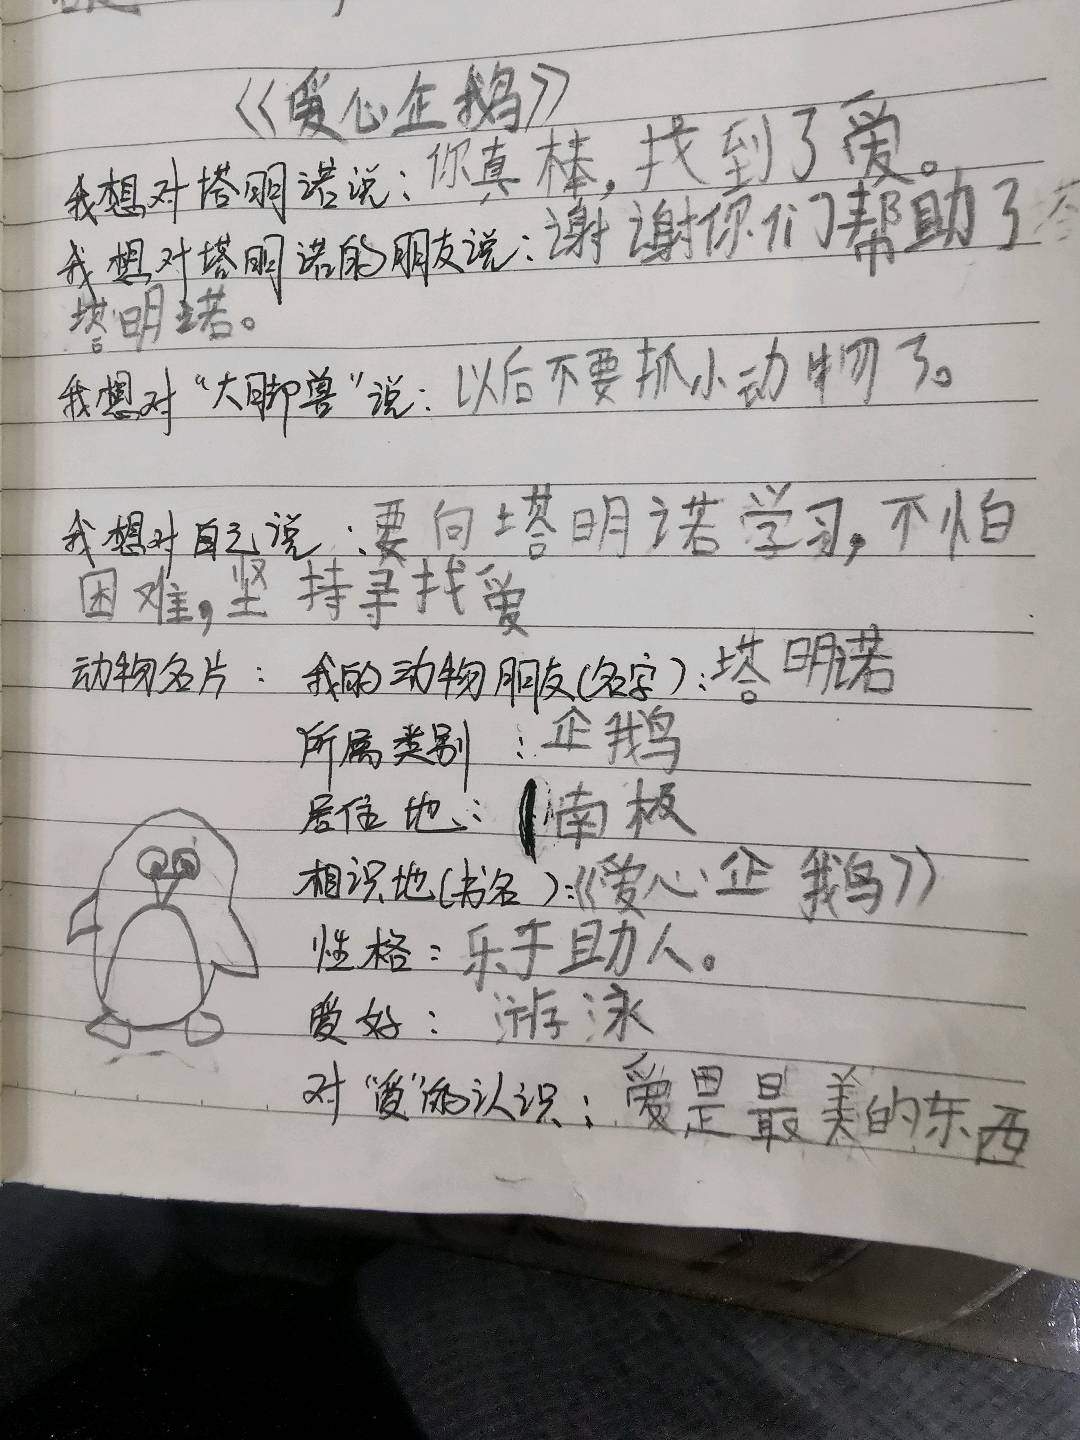 《爱心企鹅》
我想对塔明诺说：你真棒，找到了爱。
我想对塔明诺的朋友说：谢谢你们帮助了
塔明诺。
我想对“大脚兽”说：以后不要抓小动物了。
我想对自己说：要向塔明诺学习，不怕
困难，坚持寻找爱
动物名片：我的动物朋友(名字)：塔明诺
所属类别：企鹅
居住地：南极
相识地(书名)：《爱心企鹅》
性格：乐于助人。
爱好：游泳
对“爱”的认识：爱是最美的东西